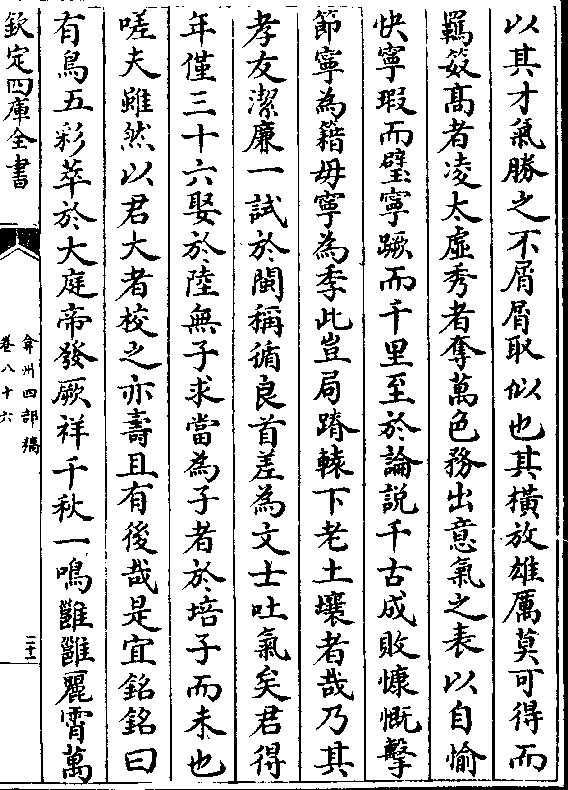 以其才氣勝之不屑屑取似也其橫放雄厲莫可得而
羈笯髙者凌太虛秀者奪萬色務出意氣之表以自愉
快寧瑕而璧寧蹶而千里至於論說千古成敗慷慨擊
節寧為籍毋寧為季此豈局蹐轅下老土壤者哉乃其
孝友潔廉一試於閩稱循良首差為文士吐氣矣君得
年僅三十六娶於陸無子求當為子者於培子而未也
嗟夫雖然以君大者校之亦壽且有後哉是宜銘銘曰
有鳥五彩萃於大庭帝發厥祥千秋一鳴雝雝麗霄萬
欽定四庫全書
弇州四部稿
卷八十六
二十一